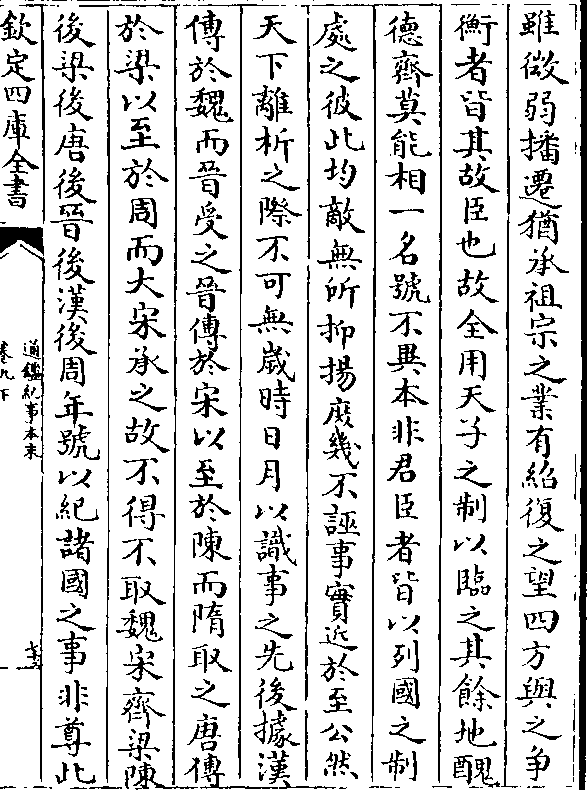 雖微弱播遷猶承祖宗之業有紹復之望四方與之争
衡者皆其故臣也故全用天子之制以臨之其餘地醜
德齊莫能相一名號不異本非君臣者皆以列國之制
處之彼此均敵無所抑揚庶幾不誣事實近於至公然
天下離析之際不可無歲時日月以識事之先後據漢
傳於魏而晉受之晉傳於宋以至於陳而隋取之唐傳
於梁以至於周而大宋承之故不得不取魏宋齊梁陳
後梁後唐後晉後漢後周年號以紀諸國之事非尊此
欽定四庫全書
通鑑紀事本末
卷九下